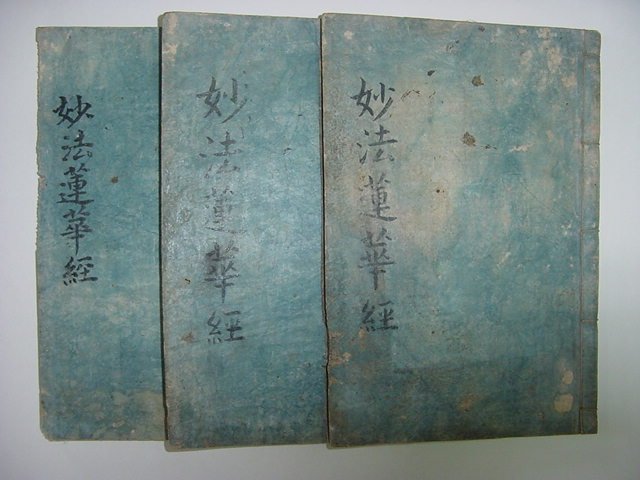 妙法蓮華經
妙法蓮華經
妙法蓮華經